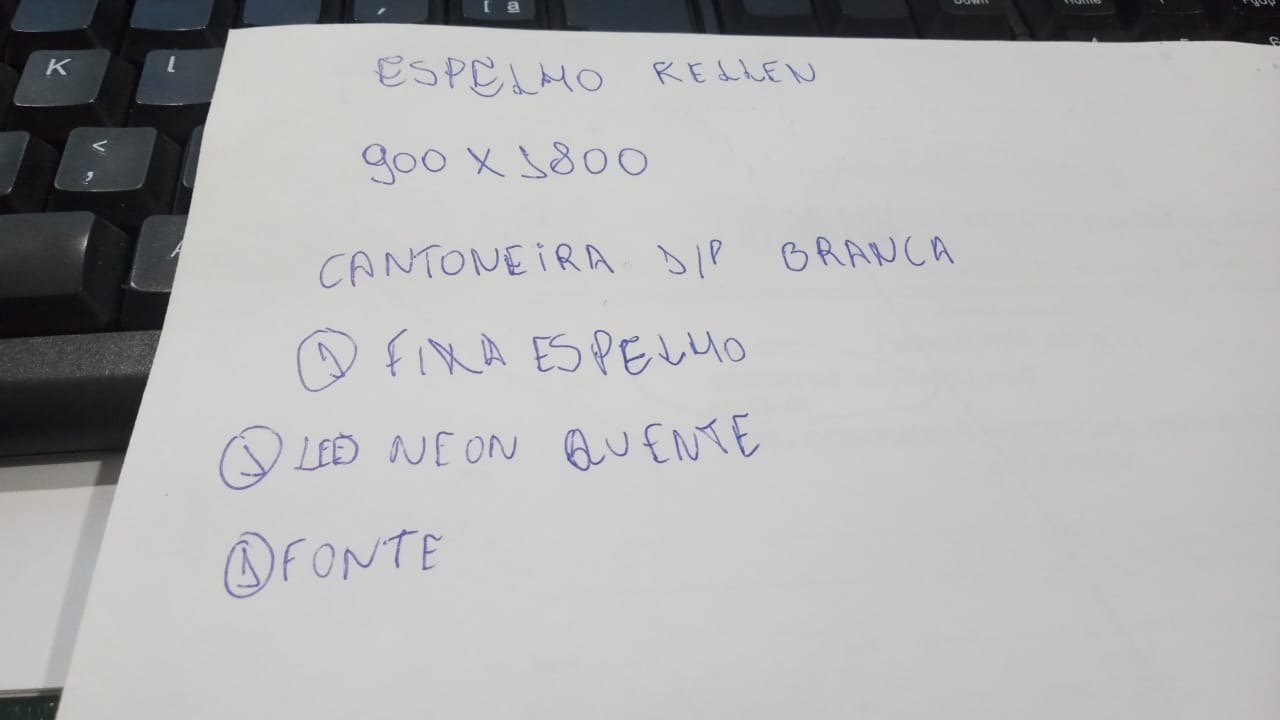 , [ ª Down Home PgUp
K L
ESPELHO KELLEN
< ,
900 X 1800
CANTONEIRA D/P BRANCA
① FIXA ESPELHO
① LED NEON QUENTE
① FONTE